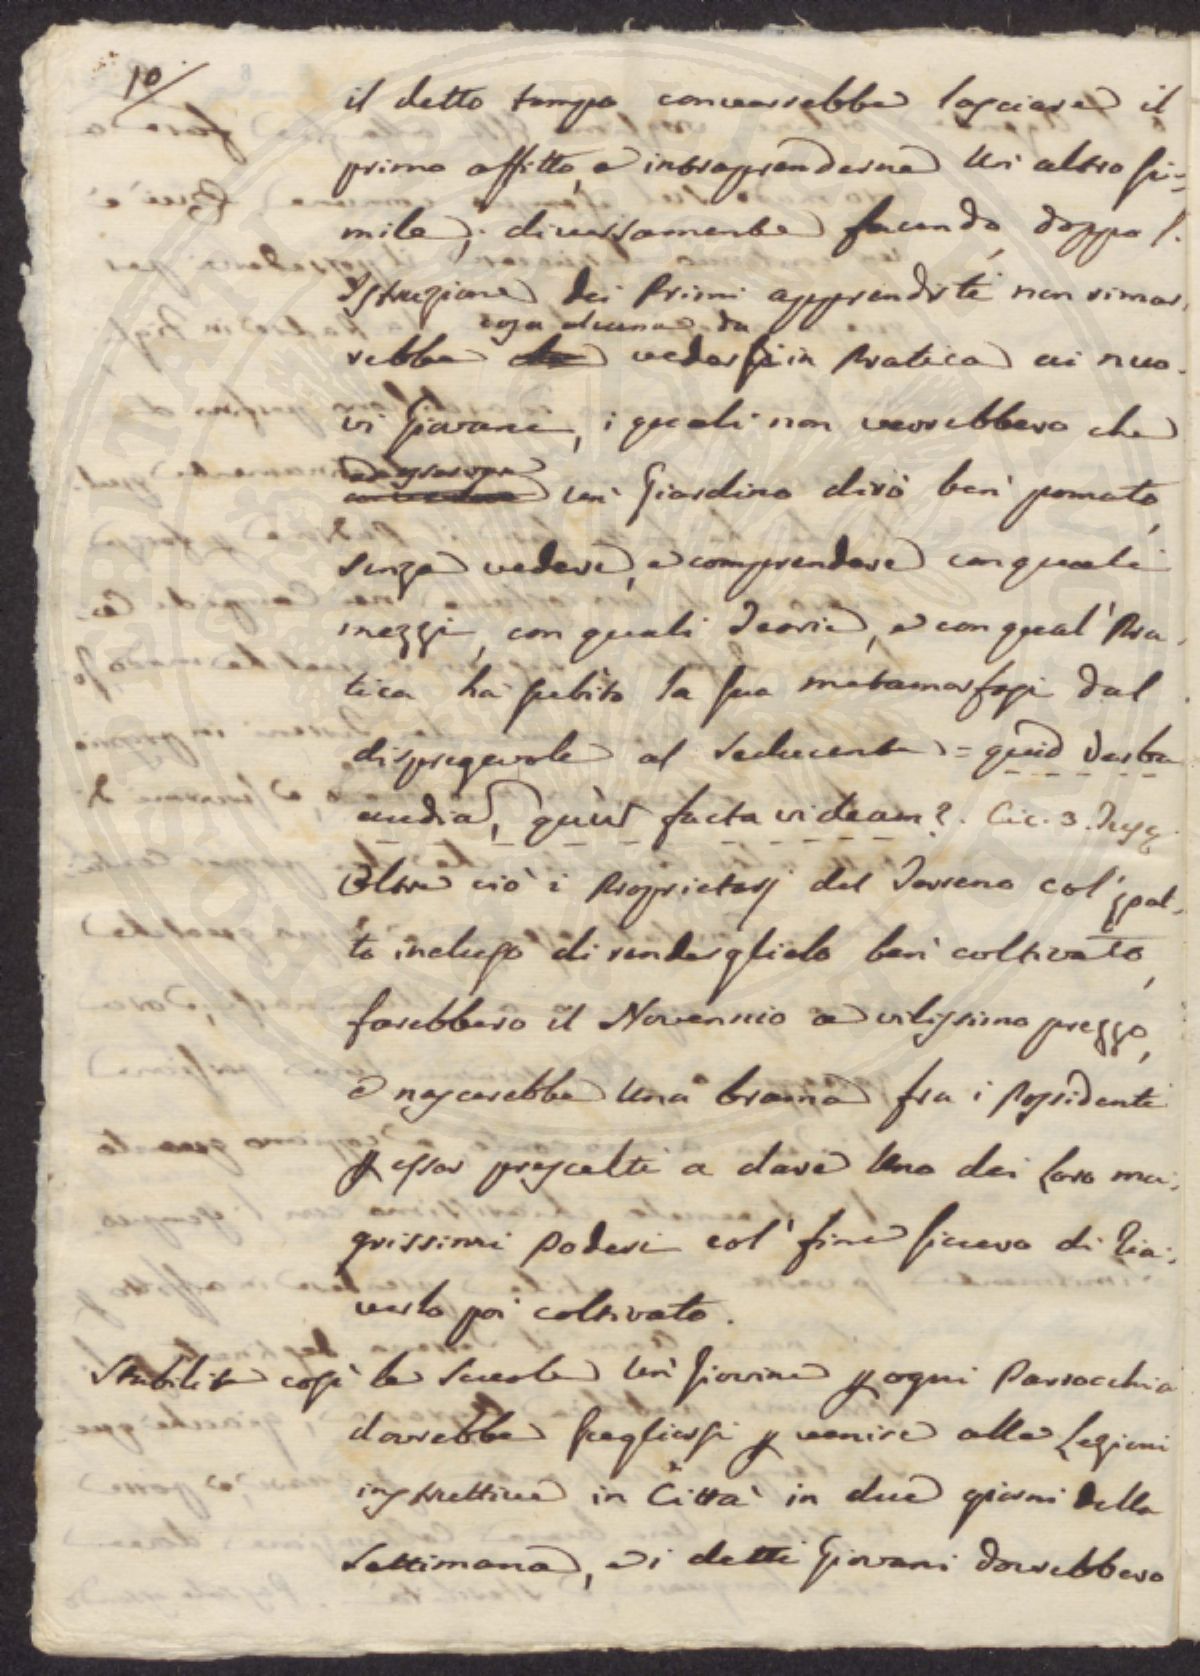 10/
il detto tempo converrebbe lasciare il
primo affitto, e intraprenderne un altro si=
mile; diversamente facendo, doppo l'
Istruzione dei Primi apprendisti non rimar,
cosa alcuna da
rebbe vedersi in Pratica ai nuo,
vi Giovani, i quali non verrebbero che
ad osservare
un Giardino dirò ben pomato,
senza vedere, e comprendere con quali
mezzi, con quali Teorie, e con qual' Pra,
tica ha subito la sua metamorfosi dal
dispregevole al seducente = quid verba
audia, quùm facta videam? Cic. 3. Tusc.
Oltre ciò i Proprietarj del Terreno col' pat,
to incluso di renderglielo ben coltivato,
farebbero il Novennio a vilissimo prezzo,
e nascerebbe una brama fra i Possidenti
p esser prescelti a dare Uno dei loro ma,
grissimi Poderi col' fine sicuro di ria,
verlo poi coltivato.
Stabilite così le Scuole un Giovine p ogni Parrocchia
dovrebbe scegliersi p venire alle Lezioni
instruttive in Città in due giorni della
Settimana, e i detti Giovani dovrebbero